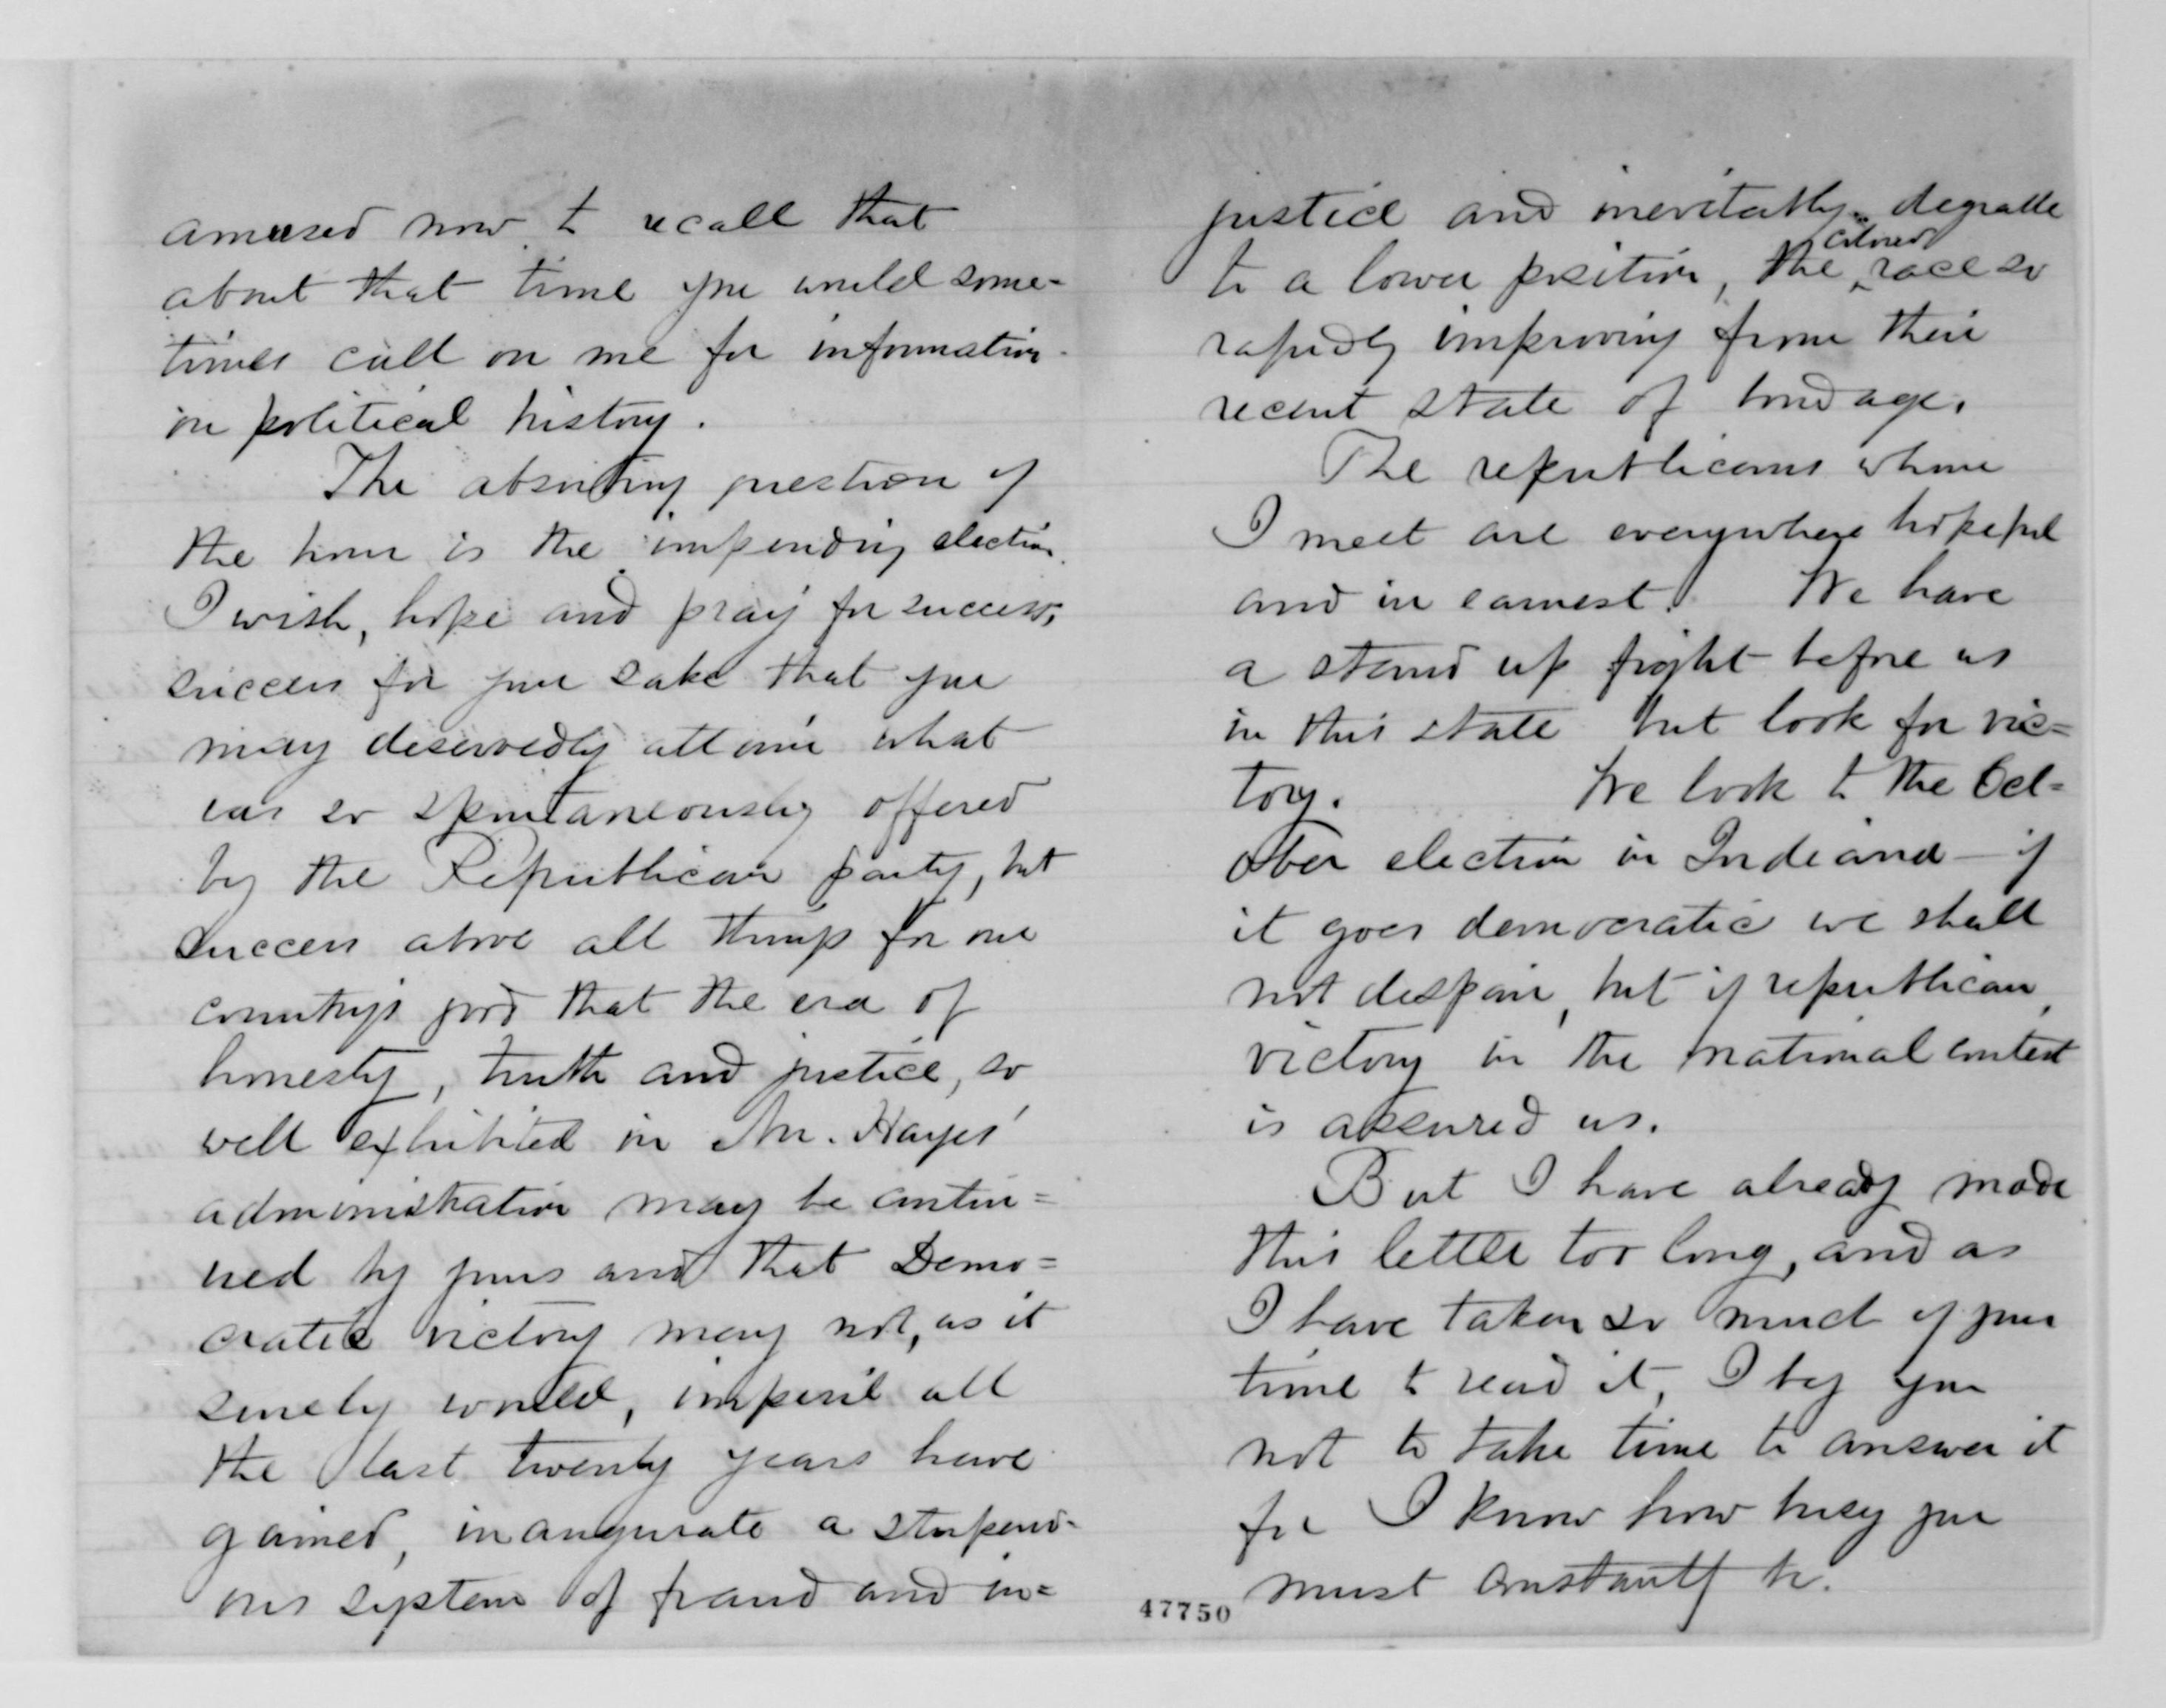 amused now to recall that
about that time you would some=
times call on me for information
in political history.
The absorbing question of
the hour is the impending election.
I wish, hope and pray for success,
success for your sake that you
may deservedly attain what
was so spontaneously offered
by the Republican party, but
success above all things for our
country's good that the era of
honesty, truth and justice, so
well exhibited in Mr. Hayes'
administration may be contin=
ued by yours and that Demo=
cratic victory may not, as it
surely would, imperil all
the last twenty years have
gained, inaugurate a stupend-
ous system of fraud and in=
justice and inevitably degrade
to a lower position, the colored race so
rapidly improving from their
recent state of bondage.
The republicans whom
I meet are everywhere hopeful
and in earnest. We have
a stand up fight before us
in this state but look for vic=
tory. We look to the Oct=
ober election in Indiana — if
it goes democratic we shall
not despair, but if republican,
victory in the national contest
is assured us.
But I have already made
this letter too long, and as
I have taken so much of your
time to read it, I beg you
not to take time to answer it
for I know how busy you
must constantly be.
47750